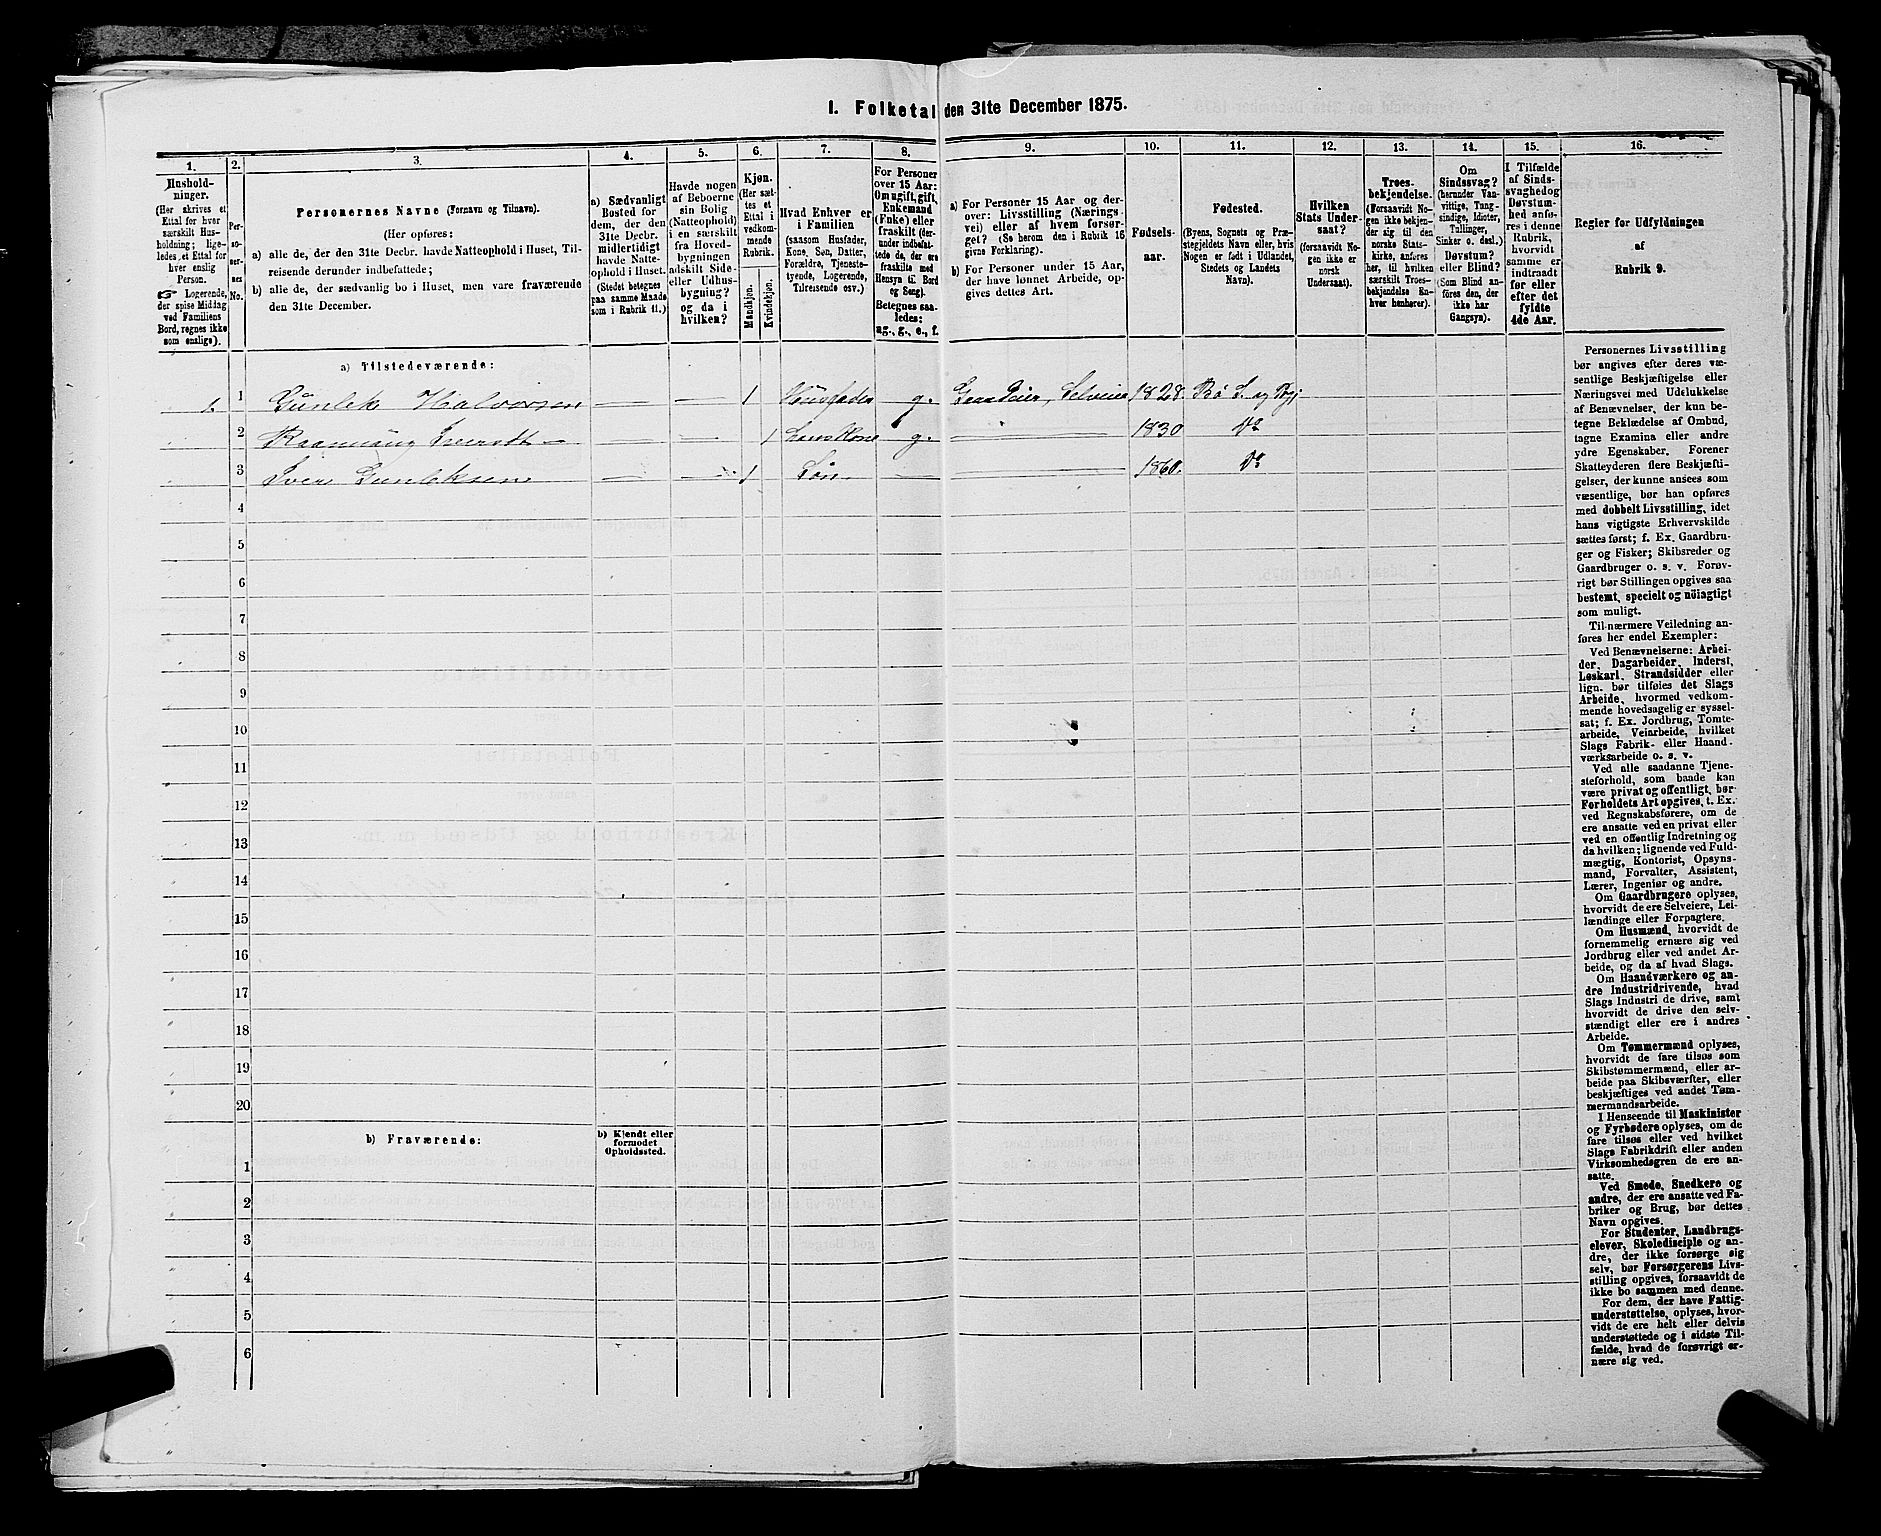 I. Folketal den 31te December 1875.
1. 2. 3. 4. 5. 6. 7. 8. 9. 10. 11. 12. 13. 14. 15. 16.
Hushold-
ninger.
(Her skrives et
Ettal for hver
særskilt Hus-
holdning; lige-
ledes et Ettal for
hver enslig
Person.
☞ Logerende,
der spise Middag
ved Familiens
Bord, regnes ikke
som enslige).
Per-
so-
ner-
nes
No.
Personernes Navne (Fornavn og Tilnavn).
(Her opføres:
a) alle de, der den 31te Decbr. havde Natteophold i Huset, Til-
reisende derunder indbefattede;
b) alle de, der sædvanlig bo i Huset, men vare fraværende
den 31te December.
a) Sædvanligt
Bosted for
dem, der den
31te Decbr. i
midlertidigt
havde Natte-
ophold i Huset.
(Stedet betegnes
paa samme Maade
som i Rubrik 11.)
Havde nogen
af Beboerne
sin Bolig
(Natteophold)
i en særskilt
fra Hoved-
bygningen
adskilt Side-
eller Udhus-
bygning?
og da i
hvilken?
Kjøn.
(Her sæt-
tes et
Ettal i
vedkom-
mende
Rubrik.
Mandkjøn.
Kvindekjøn.
Hvad Enhver er
i Familien
(saasom Husfader,
Kone, Søn, Datter,
Forældre, Tjeneste-
tyende, Logerende,
Tilreisende osv.)
For Personer
over 15 Aar:
Om ugift, gift,
Enkemand
(Enke) eller
fraskilt (der-
under indbefat-
tede de, der ere
fraskilte med
Hensyn til Bord
og Seng).
Betegnes saa-
ledes:
ug., g., e., f.
a) For Personer 15 Aar og der-
over: Livsstilling (Nærings-
vei) eller af hvem forsør-
get? (Se herom den i Rubrik 16
givne Forklaring).
b) For Personer under 15 Aar,
der have lønnet Arbeide, op-
gives dettes Art.
Fødsels-
aar.
Fødested.
(Byens, Sognets og Præ-
stegjeldets Navn eller, hvis
Nogen er født i Udlandet,
Stedets og Landets
Navn).
Hvilken
Stats Under-
saat?
(forsaavidt No-
gen ikke er
norsk
Undersaat).
Troes-
bekjendelse.
(Forsaavidt No-
gen ikke bekjen-
der sig til den
norske Stats-
kirke, anføres
her, til hvilken
særskilt Troes-
bekjendelse En-
hver henhører).
Om
Sindssvag?
(herunder Van-
vittige, Tung-
sindige, Idioter,
Tullinger,
Sinker o. desl.)
Døvstum?
eller Blind?
(Som Blind an-
føres den, der
ikke har
Gangsyn).
I Tilfælde
af Sinds-
svaghed og
Døvstum-
hed anfø-
res i denne
Rubrik,
hvorvidt
samme er
indtraadt
før eller
efter det
fyldte
4de Aar.
Regler for Udfyldningen
af
Rubrik 9.
a) Tilstedeværende:
1 1 Gunlek Halvorsen 1 Husfader g. Gaardeier, Selveier 1828. Bø S. og Pgj
2 Iversdt 1 hans Kone g. 1830 Do
3 Iver Gunleksen 1 Søn 1860. Do
4
5
6
7
8
9
10
11
12
13
14
15
16
17
18
19
20
b) Fraværende:
b) Kjendt eller
formodet
Opholdssted.
1
2
3
4
5
6
Personernes Livsstilling
bør angives efter deres væ-
sentlige Beskjæftigelse eller
Næringsvei med Udelukkelse
af Benævnelser, der kun be-
tegne Beklædelse af Ombud,
tagne Examina eller andre
ydre Egenskaber. Forener
Skatteyderen flere Beskjæfti-
gelser, der kunne ansees som
væsentlige, bør han opføres
med dobbelt Livsstilling, idet
hans vigtigste Erhvervskilde
sættes først; f. Ex. Gaardbru-
ger og Fisker; Skibsreder og
Gaardbruger o. s. v. Forøv-
rigt bør Stillingen opgives saa
bestemt, specielt og nöiagtigt
som muligt.
Til nærmere Veiledning an-
føres her endel Exempler:
Ved Benævnelserne: Arbei-
der, Dagarbeider, Inderst,
Løskarl, Strandsidder eller
lign. bør tilføies det Slags
Arbeide, hvormed vedkom-
mende hovedsagelig er syssel-
sat; f. Ex. Jordbrug, Tomte-
arbeide, Veiarbeide, hvilket
Slags Fabrik- eller Haand-
værksarbeide o. s. v.
Ved alle saadanne Tjene-
steforhold, som baade kan
være privat og offentligt, bør
Forholdets Art opgives, t. Ex.
ved Regnskabsførere, om de
ere ansatte ved en privat eller
ved en offentlig Indretning og
da hvilken; lignende ved Fuld-
mægtig, Kontorist, Opsyns-
mand, Forvalter, Assistent,
Lærer, Ingeniør og andre.
Om Gaardbrugere oplyses,
hvorvidt de ere Selveiere, Lei-
lændinge eller Forpagtere.
Om Husmænd, hvorvidt de
fornemmelig ernære sig ved
Jordbrug eller ved andet Ar-
beide, og da af hvad Slags.
Om Haandværkere og an-
dre Industridrivende, hvad
Slags Industri de drive, samt
hvorvidt de drive den selv-
stændigt eller ere i andres
Arbeide.
Om Tømmermænd oplyses,
hvorvidt de fare tilsøs som
Skibstømmermænd, eller ar-
beide paa Skibsværfter, eller
beskjæftiges ved andet Tøm-
mermandsarbeide.
I Henseende til Maskinister
og Fyrbødere oplyses, om de
fare tilsøs eller ved hvilket
Slags Fabrikdrift eller anden
Virksomhedsgren de ere an-
satte.
Ved Smede, Snedkere og
andre, der ere ansatte ved Fa-
briker og Brug, bør dettes
Navn opgives.
For Studenter, Landbrugs-
elever, Skoledisciple og an-
dre, der ikke forsørge sig
selv, bør Forsørgerens Livs-
stilling opgives, forsaavidt de
ikke bo sammen med denne.
For dem, der have Fattig-
understøttelse, oplyses, hvor-
vidt de ere helt eller delvis
understøttede og i sidste Til-
fælde, hvad de forøvrigt er-
nære sig ved.